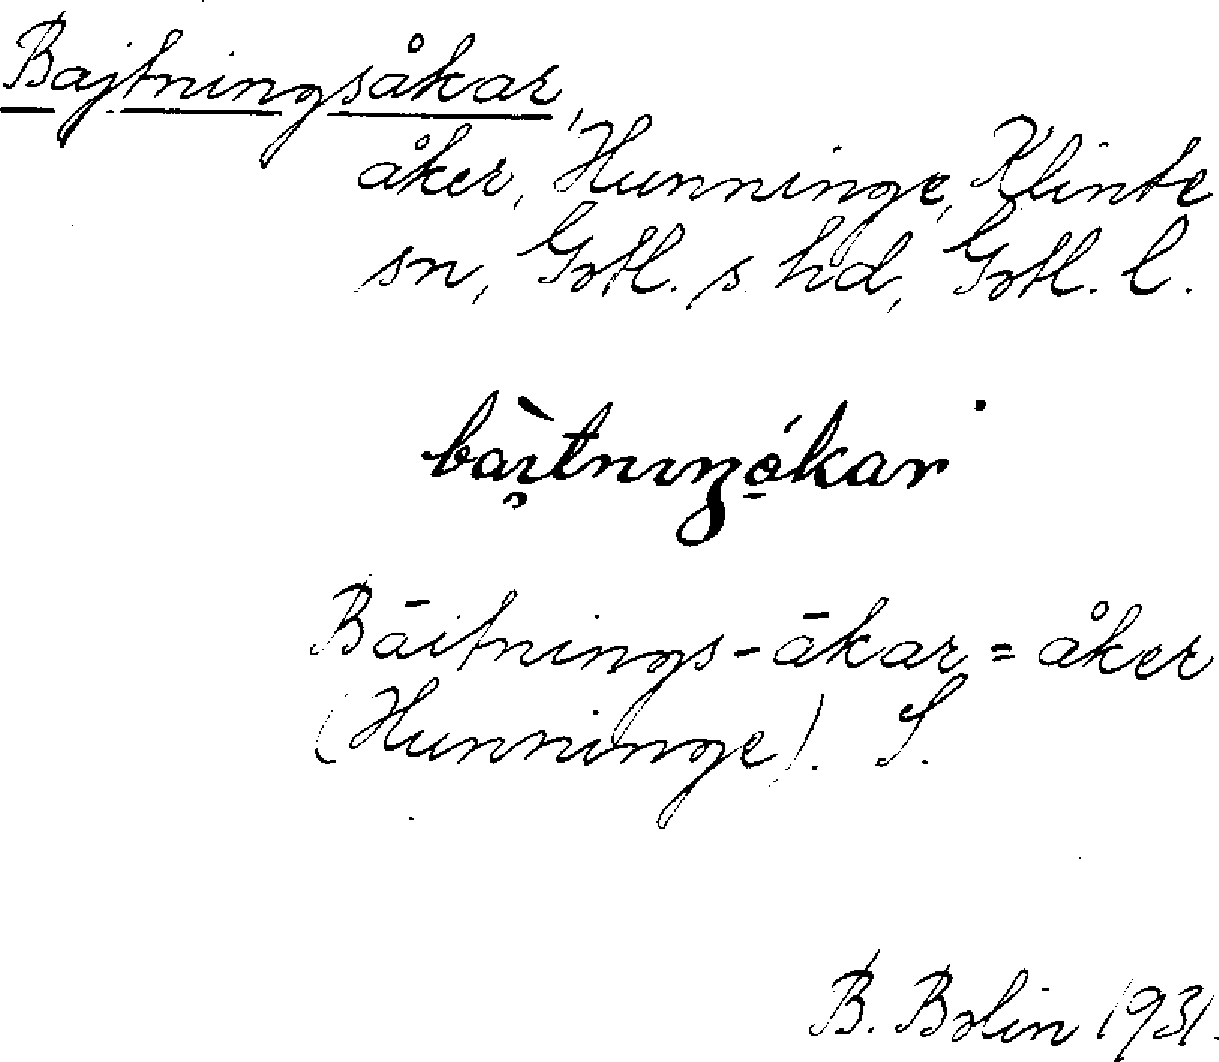 Bajtningsåkar,
åker, Hunninge, Klinte
sn, Gotl. s hd, Gotl. l.
bàı̨tnıŋǫ́kar
Bāitnings-ākar = åker
(Hunninge). S.
B. Bolin 1931.